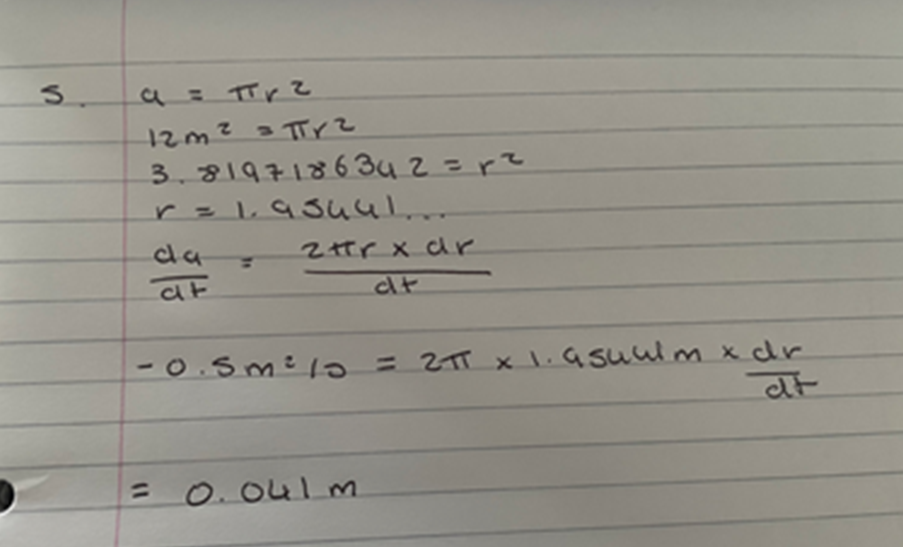 5. a = πr²
12m² = πr²
3.8197186342 = r²
r = 1.95441...
da/dt = 2πr × dr/dt
-0.5m²/s = 2π × 1.95441m × dr/dt
= 0.041m